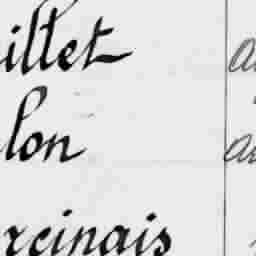 illet
lon
rcinais